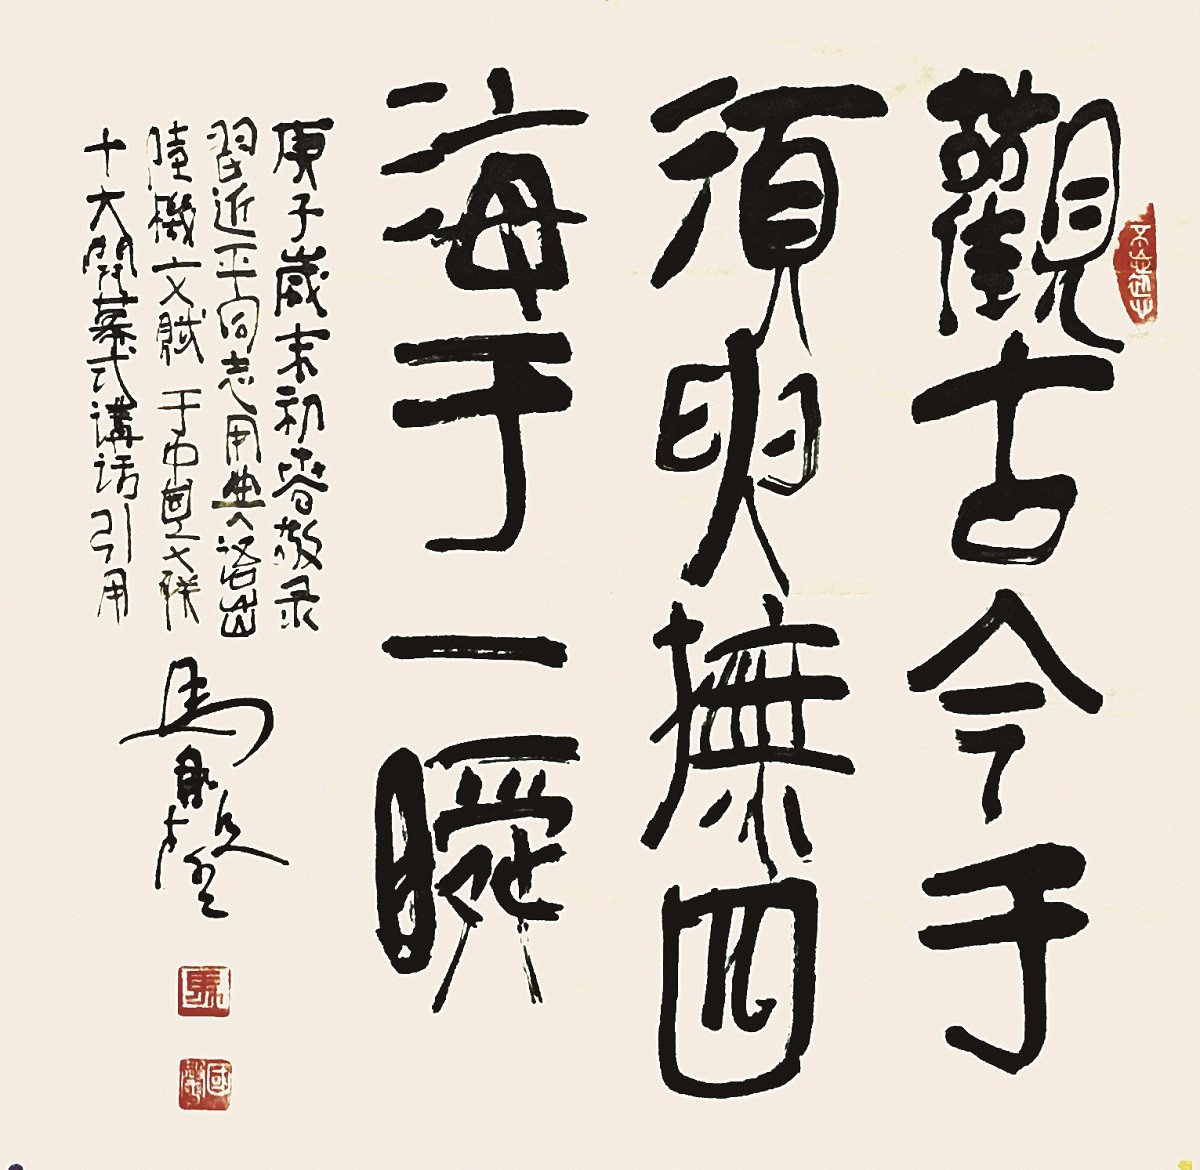 觀古今于
須臾撫四
海于一瞬
庚子歲末初春敬录
習近平同志用典語出
陸機文賦于中國文联
十大開幕式講話引用
馬
馬